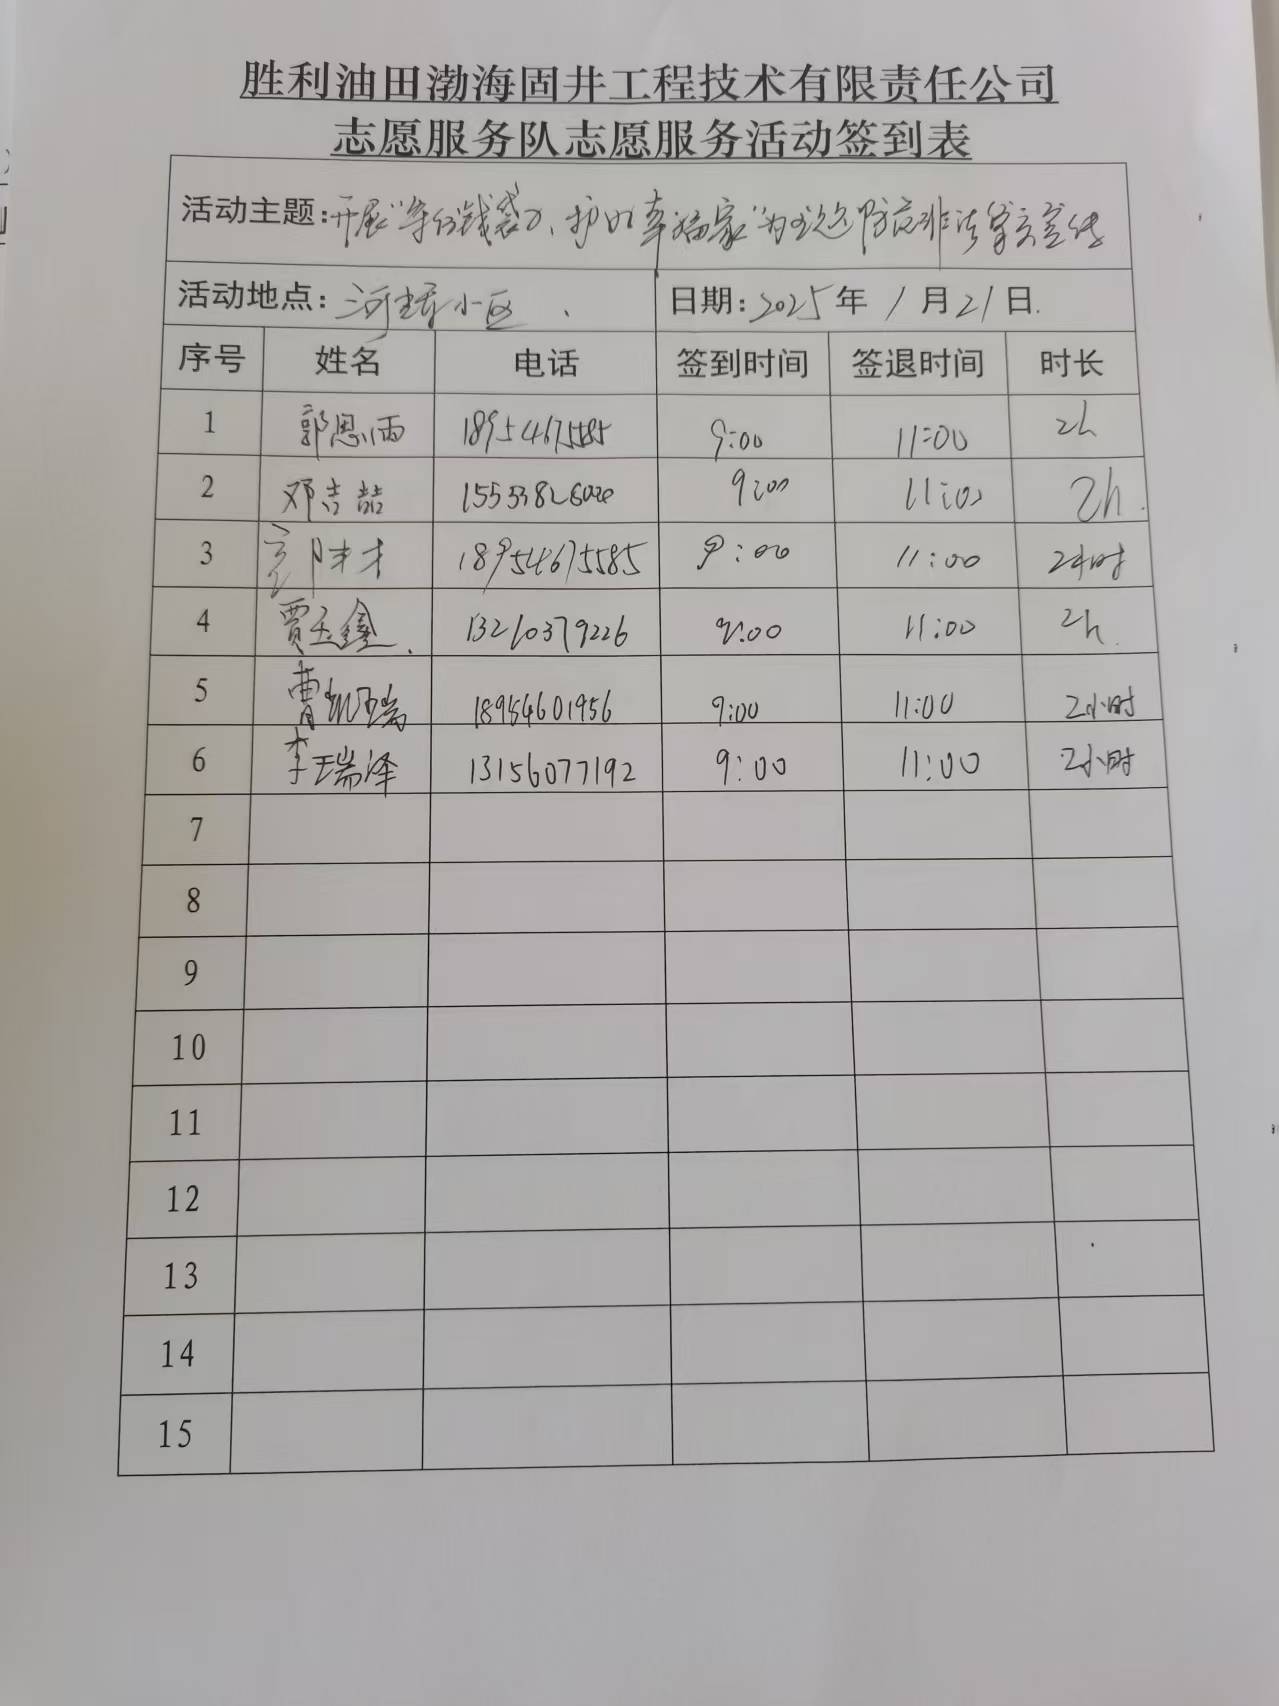 胜利油田渤海固井工程技术有限责任公司
志愿服务队志愿服务活动签到表
活动主题:开展"守好钱袋子、护好幸福家"为主题防范非法集资宣传
活动地点:小区 日期:2025年1月21日.
序号 姓名 电话 签到时间 签退时间 时长
1 郭思雨 18954675585 9:00 11:00 2h
2 邓吉喆 9:00 11:00 2h.
3 18954675585 9:00 11:00 2小时
4 贾玉鑫. 13210379226 9:00 11:00 2h.
5 曹凯瑞 18954601956 9:00 11:00 2小时
6 李瑞泽 13156077192 9:00 11:00 2小时
7
8
9
10
11
12
13
14
15